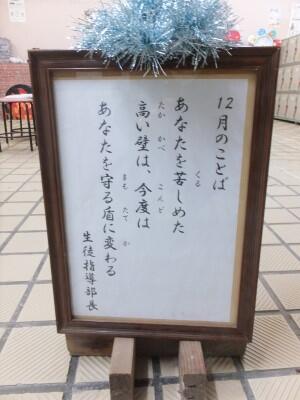 12月のことば
あなたを苦しめた
高い壁は、今度は
あなたを守る盾に変わる
生徒指導部長